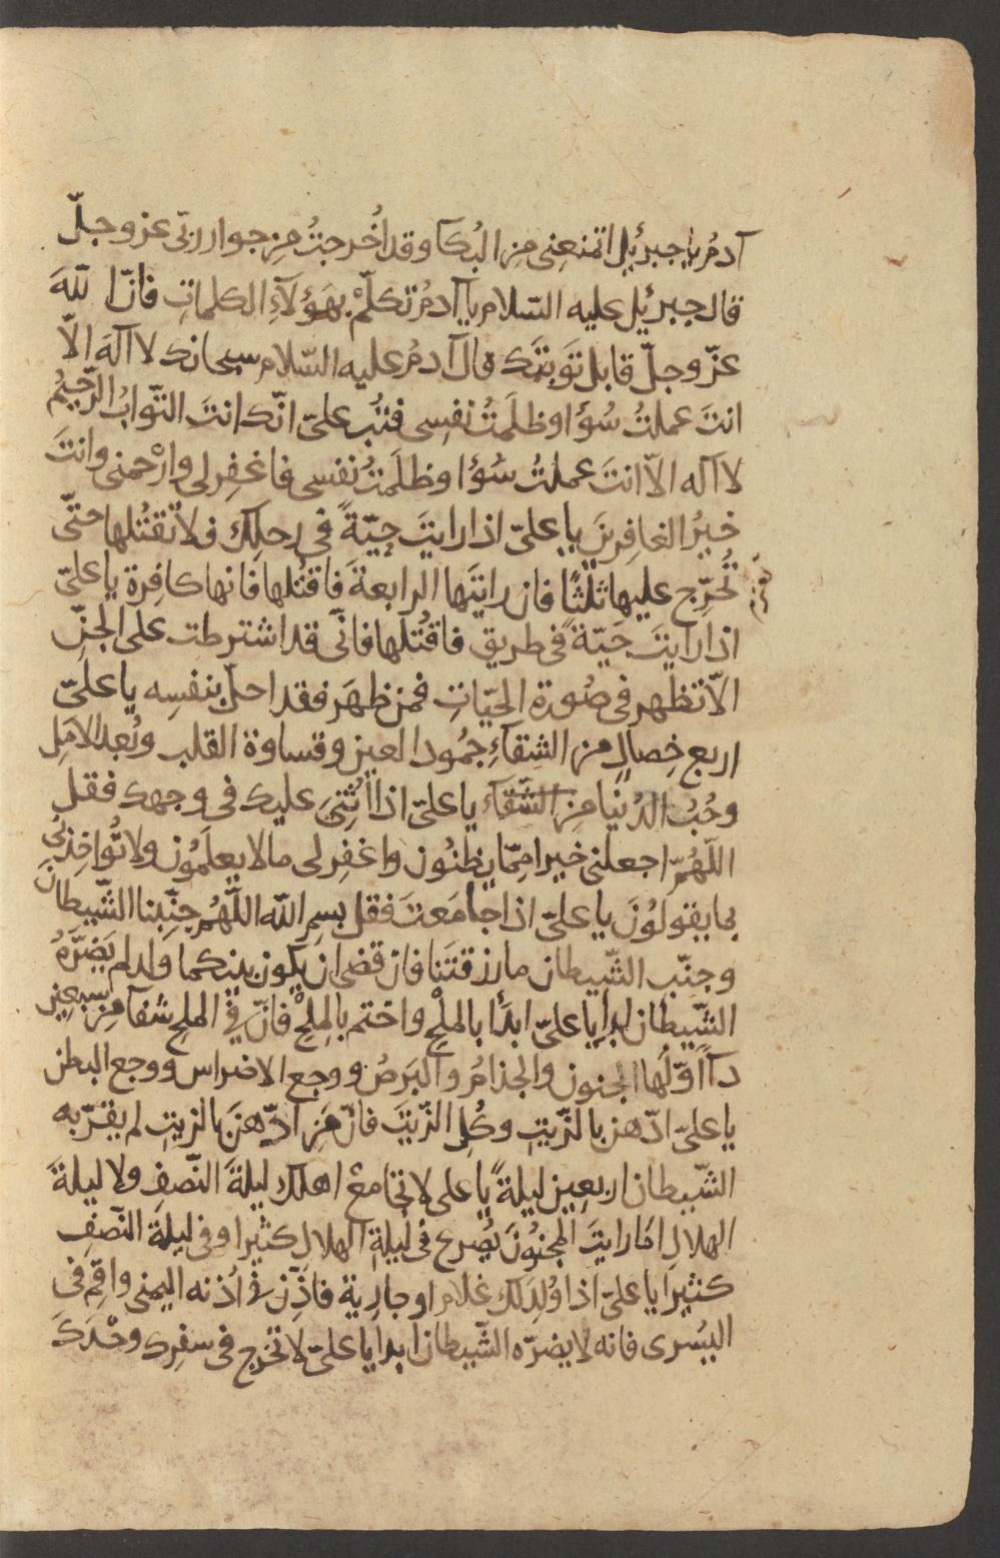 آدمُ يا جبرئيل اتمنعنى مِن البُكا وقد اُخرجتُ مِن جوار ربّى عز وجلّ
قال جبرئيل عليه السّلام يا آدمُ تكلّمْ بهَؤلآءِ الكلماتِ فانّ اللّهَ
عزّ وجلّ قابل تَوبتَك قال آدمُ عليه السّلام سبحانك لا آلهَ الّا
انتَ عملتُ سُؤا وظلَمتُ نفسِى فتُب علىّ انّك انتَ التّوابُ الرّحيمُ
لا آله الّا انتَ عملتُ سُؤا وظلَمتُ نفسى فاغفِر لى وارْحمنى وانتَ
خيرُ الغافِرينَ يا علىّ اذا رايتَ حيّةً في رحلِك فلا تقتُلها حتّى
تُحرّج عليها ثلٰثًا فان رايتَها الرابعةَ فاقتُلها فانها كافِرة يا علىّ
اذا رايتَ حَيّةً فى طريق فاقتُلها فانّى قد اشترطت على الجنّ
الّا تظهر فى صُورة الحيّاتِ فمَن ظهَر فقد احلّ بنفسِه يا علىّ
اربع خِصالٍ مِن الشقآءِ جمُود العين وقساوة القلب وبُعد الامَلِ
وحُبُّ الدُنيا مِن الشَّقآء يا علىّ اذا اُثنِىَ عليك فى وجهك فقل
اللّهُمّ اجعلنى خيرا مِمّا يظنُون واغفِر لى ما لا يعلَمُون ولا تُواخِذنى
بما يقولوُنَ يا علىّ اذا جامَعتَ فقل بسمِ اللّه اللّهُم جنّبنا الشّيطانَ
وجنّب الشّيطان ما رزقتَنا فان قضى ان يكون بينكما ولد لم يَضرّهُ
الشّيطان ابدا يا علىّ ابدَأ بالملْحِ واختم بالمِلْحِ فانّ في الملح شفآ مِن سبعين
دآاً اوّلُها الجنون والجذامُ والبَرصُ ووجع الاضراس ووجع البطن
يا علىّ ادّهن بالزّيتِ وكُلِ الزّيتَ فانّ مَن ادّهنَ بالزيتِ لم يقرّبه
الشّيطان اربعِين ليلةً يا على لا تجامعْ اهلك ليلةَ النّصفِ ولا ليلةَ
الهلالِ امَا رايتَ المجنوُنَ يُصرع فى ليلةِ الهلالِ كثيرا وفى ليلة النّصفِ
كثيرا يا علىّ اذا وُلِدَ لك غلام او جارية فاذّن في اُذنه اليمنى واقِم فى
اليُسرى فانه لا يضرّه الشّيطان ابدا يا علىّ لا تخرج فى سفرِك وحْدَكَ